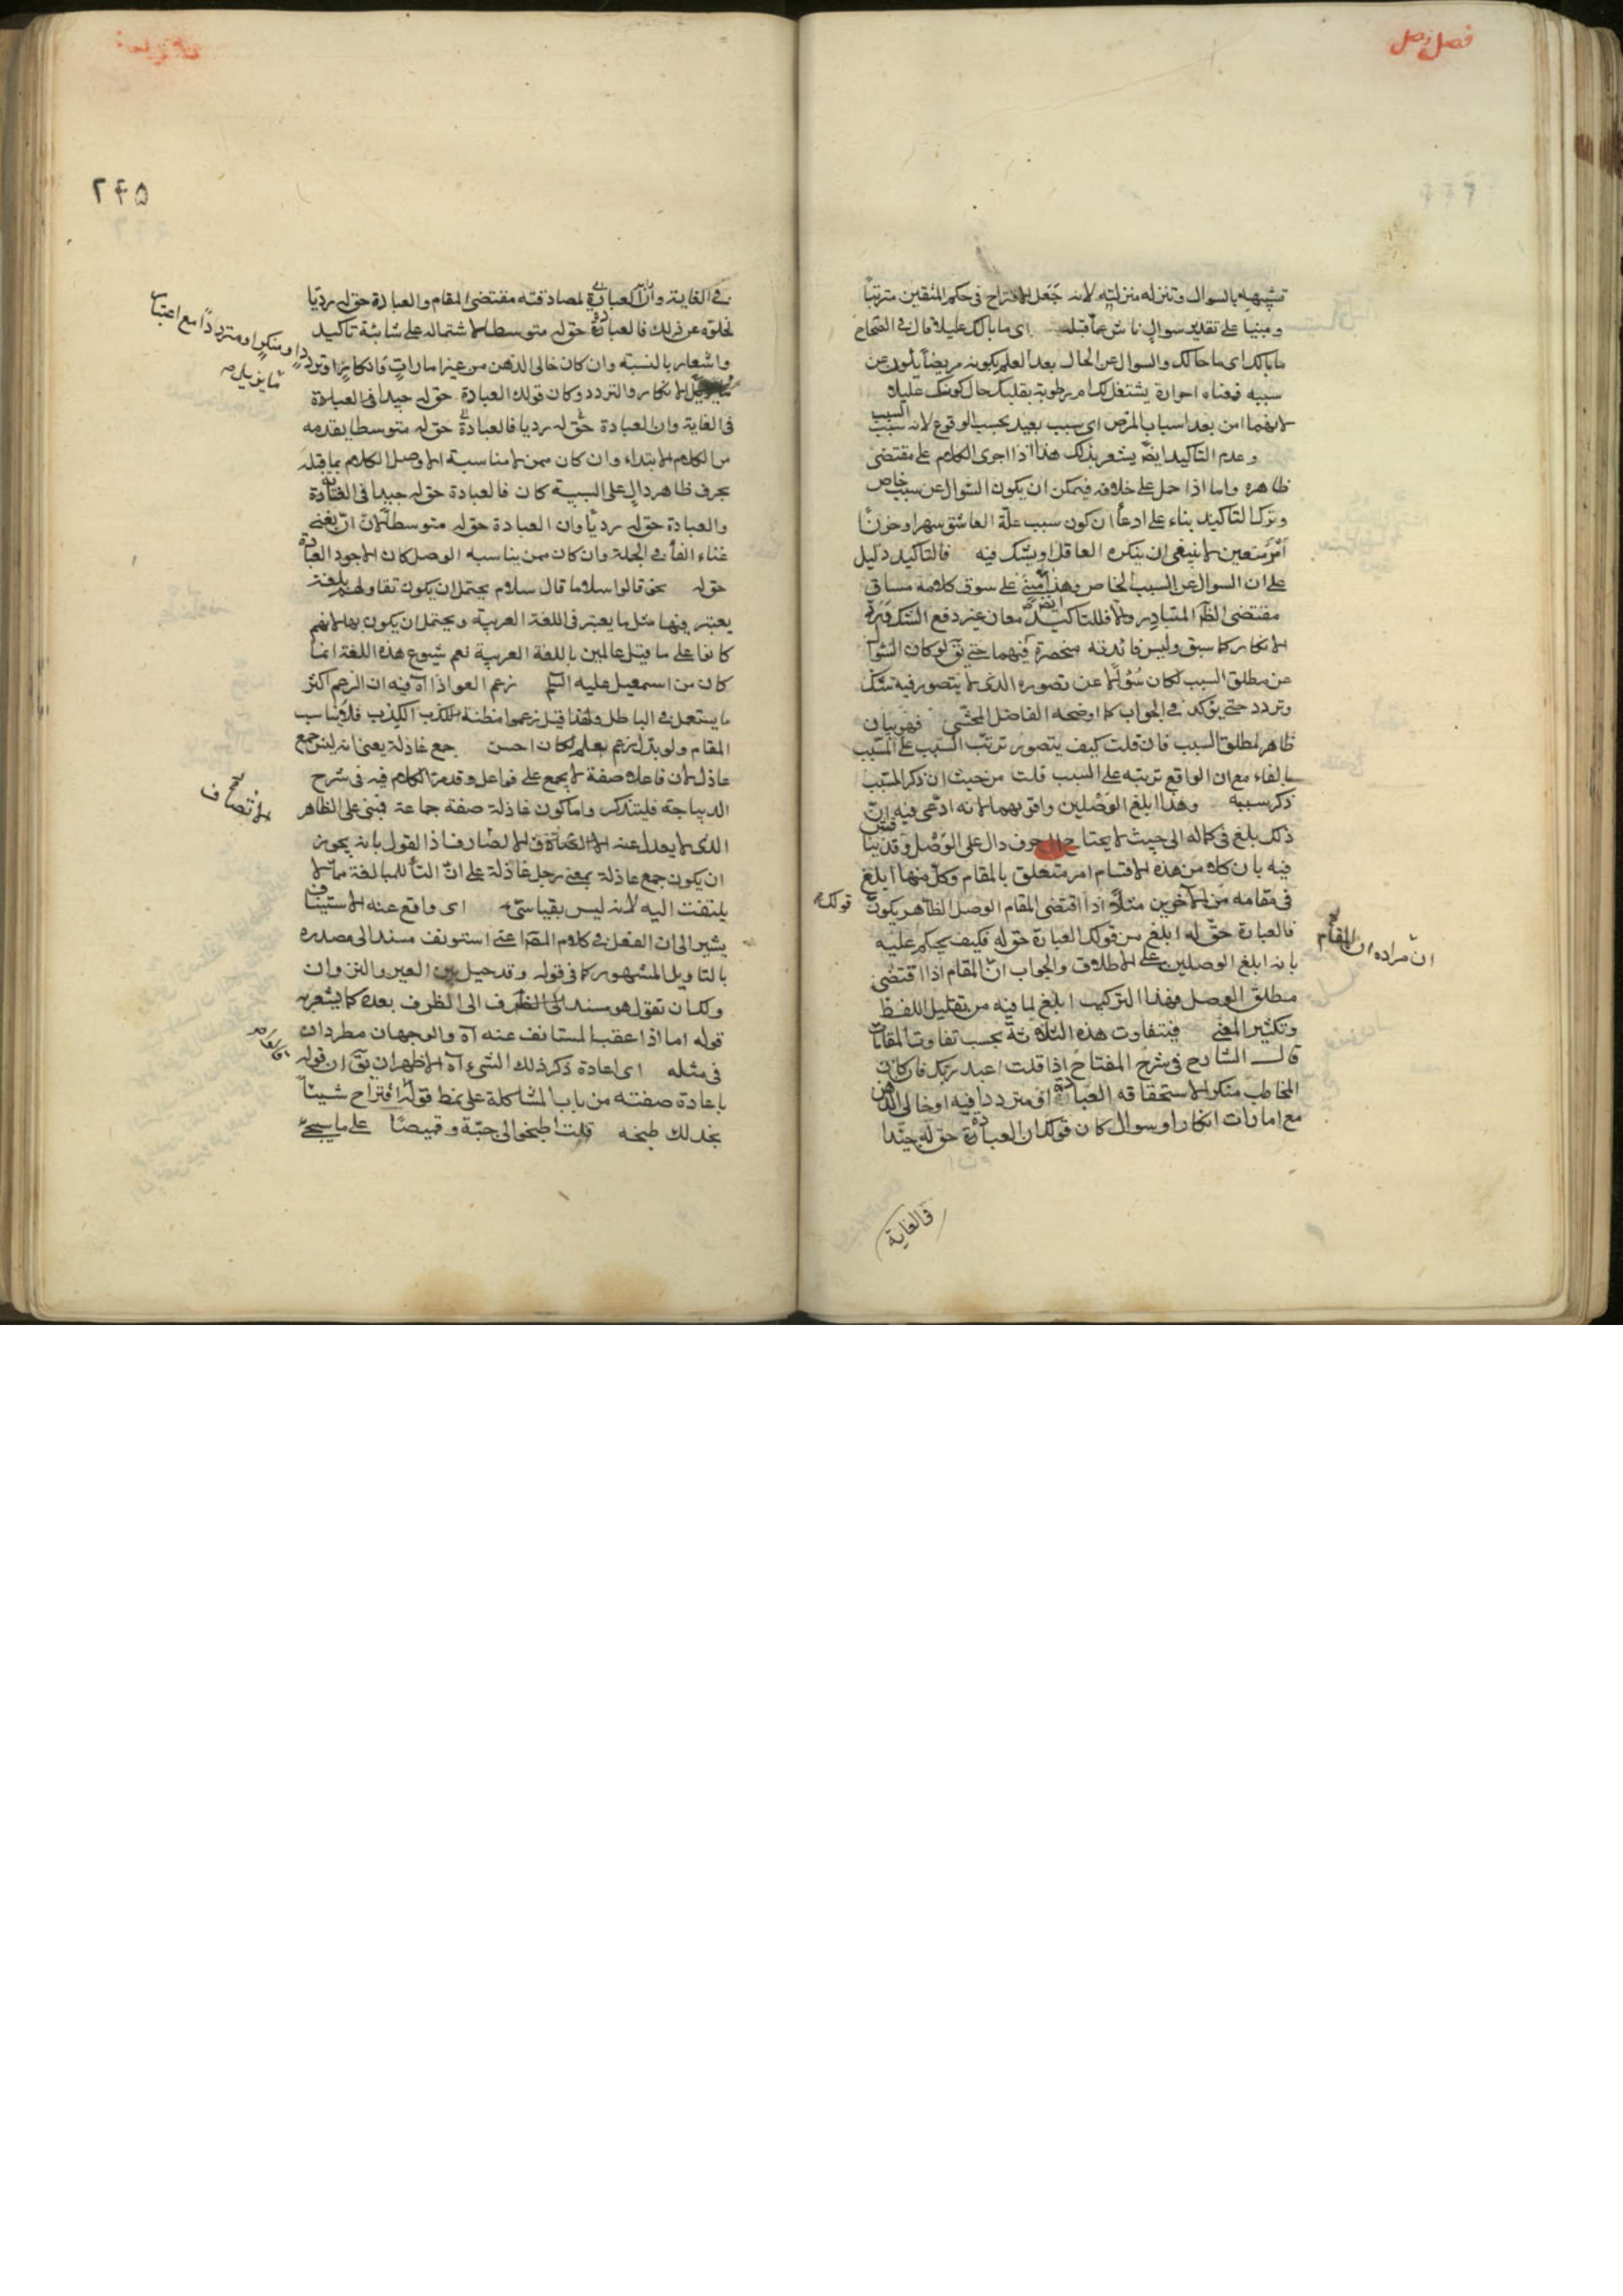 فصل وصل
تشبيهه بالسوال وتنزله منزلته لانه جعل الاقتراح في حكم المتقين مترتبا
ومبنيا على تقدير سوال ناش عما قبله اى ما بالك عليلا قال في الصحاح
ما بالك اى ما حالك والسوال عن الحال بعد العلم بكونه مريضا يكون عن
سببه فمعناه احرارة يشتغل لك ام برطوبة بقلبك حال كونك عليلا
لانهما من بعد اسباب المرض اى سبب بعيد بحسب الوقوع لانه سبب السبب
وعدم التاكيد ايضا يشعر بذلك هذا اذا اجرى الكلام على مقتضى
ظاهره واما اذا حمل على خلافه فيمكن ان يكون السوال عن سبب خاص
وترك التاكيد بناء على ادعاء ان كون سبب علة العاشق سهرا وحزنا
امر متعين لا ينبغي ان ينكره العاقل او يشك فيه فالتاكيد دليل
على ان السوال عن السبب الخاص وهذا مبنى على سوق كلامه مساق
مقتضى الظ المتبادر والا فللتاكيد ايض معان غير دفع الشك ورد
الانكار كما سبق وليس فائدته منحصرة فيهما حتى يق لو كان السوال
عن مطلق السبب لكان سؤالا عن تصوره الذى لا يتصور فيه شك
وتردد حتى يؤكد في الجواب كما اوضحه الفاضل المحشى فهو بيان
ظاهر لمطلق السبب فان قلت كيف يتصور ترتب السبب على المسبب
بالفاء مع ان الواقع ترتبه على السبب قلت من حيث ان ذكر المسبب
ذكر سببه وهذا ابلغ الوصلين واقويهما لانه ادعى فيه ان
ذلك بلغ في كماله الى حيث لا يحتاج الى حرف دال على الوصل وقد بينا
فيه بان كلا من هذه الاقسام امر متعلق بالمقام وكل منها ابلغ
في مقامه من الاخرين مثلا اذا اقتضى المقام الوصل الظاهر يكون قولك
فالعبادة حق له ابلغ من قولك العبادة حق له فكيف يحكم عليه
بانه ابلغ الوصلين على الاطلاق والجواب ان المقام اذا اقتضى
ان مراده ان المقام
مطلق الوصل فهذا التركيب ابلغ لما فيه من تقليل اللفظ
وتكثير المعنى فيتفاوت هذه الثلاثة بحسب تفاوت المقامات
قال الشارح في شرح المفتاح اذا قلت اعبد ربك فان كان
المخاطب منكرا لاستحقاقه العبادة او مترددا فيه او خالى الذهن
مع امارات انكار او سوال كان قولك ان العبادة حق له جيدا
في الغاية
٢۴۵
في الغاية وان العبادة لمصادقته مقتضى المقام والعبادة حق له رديا
لخلوه عن ذلك فالعبادة حق له متوسطا لاشتماله على شائبة تاكيد
واشعار بالنسبة وان كان خالى الذهن من غير امارات
او منكرا ومترددا مع اعتبار
ما يزيل
الانكار والتردد وكان قولك العبادة حق له جيدا في العبادة
في الغاية وان العبادة حق له رديا فالعبادة حق له متوسطا بقدمه
من الكلام الابتداء وان كان ممن لا مناسبة الا وصل الكلام بما قبله
بحرف ظاهر دال على السببية كان فالعبادة حق له جيدا في الغاية
والعبادة حق له رديا وان العبادة حق له متوسطا لان ان يغنى
غناء الفاء في الجملة وان كان ممن يناسبه الوصل كان الاجود العبادة
حق له نحو قالوا سلاما قال سلام يحتمل ان يكون تقاولهم بلغة
يعتبر فيها مثل ما يعتبر في اللغة العربية ويحتمل ان يكون بها لانهم
كانوا على ما قيل عالمين باللغة العربية نعم شيوع هذه اللغة انما
كان من اسمعيل عليه السلم زعم العواذل آه فيه ان الزعم اكثر
ما يستعمل في الباطل ولهذا قيل زعموا مظنة الكذب فلا يناسب
المقام ولو بدل زعم بعلم لكان احسن جمع عاذلة يعنى انه ليس جمع
عاذل لان فاعلا صفة لا يجمع على فواعل وقد مر الكلام فيه في شرح
الديباجة فليتذكر واما كون عاذلة صفة جماعة فبنى على الظاهر
الذى لا يعدل عنه الا لصارف اذ القول بانه يجوز
الانصاف
ان يكون جمع عاذلة بمعنى رجل عاذلة على ان التاء للمبالغة مما لا
يلتفت اليه لانه ليس بقياسى اى واقع عنه الاستيناف
يشير الى ان الفعل في كلام المص اعنى استونف مسند الى مصدره
بالتاويل المشهور كما في قوله وقد حيل بين العير والنزوان
ولك ان تقول هو مسند الى الظرف بعده كما يشعر به
قوله اما اذا عقب المستانف عنه آه والوجهان مطردان
في مثله اى اعادة ذكر ذلك الشىء آه الاظهر ان يق ان قوله
باعادة صفته من باب المشاكلة على نمط قوله اقترح شيئا
نجد لك طبخه قلت اطبخوا لى جبة وقميصا على ما سيجئ